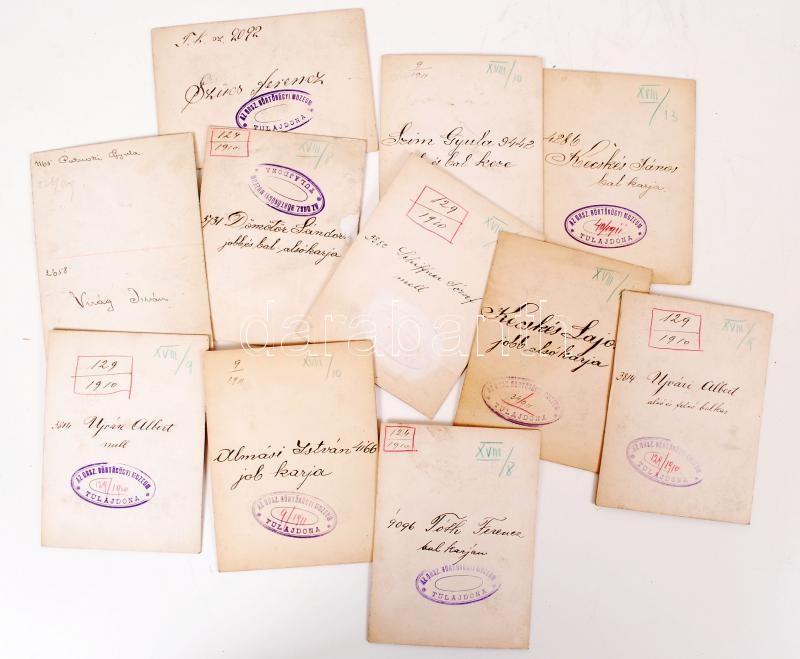 T. K. sz. 2092
Szücs Ferencz
AZ ORSZ. BÖRTÖNÜGYI MUZEUM
TULAJDONA
9/1911
XVIII/10
Szim Gyula 9442
bal keze
XVIII/13
4286 Kecskés János
bal karja
AZ ORSZ. BÖRTÖNÜGYI MUZEUM
TULAJDONA
Gyula
2658
Virág István
127/1910
XVIII/8
AZ ORSZ. BÖRTÖNÜGYI MUZEUM
TULAJDONA
Dömötör Sándor
jobb és bal alsó karja
129/1910
XVIII/
József
mell
XVIII/
Kecskés Lajos
jobb alsó karja
AZ ORSZ. BÖRTÖNÜGYI MUZEUM
TULAJDONA
129/1910
3814 Ujvári Albert
alsó és felső bal kar
AZ ORSZ. BÖRTÖNÜGYI MUZEUM
129/1910
TULAJDONA
129/1910
XVIII/9
3814 Ujvári Albert
mell
AZ ORSZ. BÖRTÖNÜGYI MUZEUM
129/1910
TULAJDONA
9/1911
XVIII/10
Almási István 4166
job karja
AZ ORSZ. BÖRTÖNÜGYI MUZEUM
9/1911
TULAJDONA
124/1910
XVIII/8
9096 Tóth Ferencz
bal karján
AZ ORSZ. BÖRTÖNÜGYI MUZEUM
TULAJDONA
darabanth